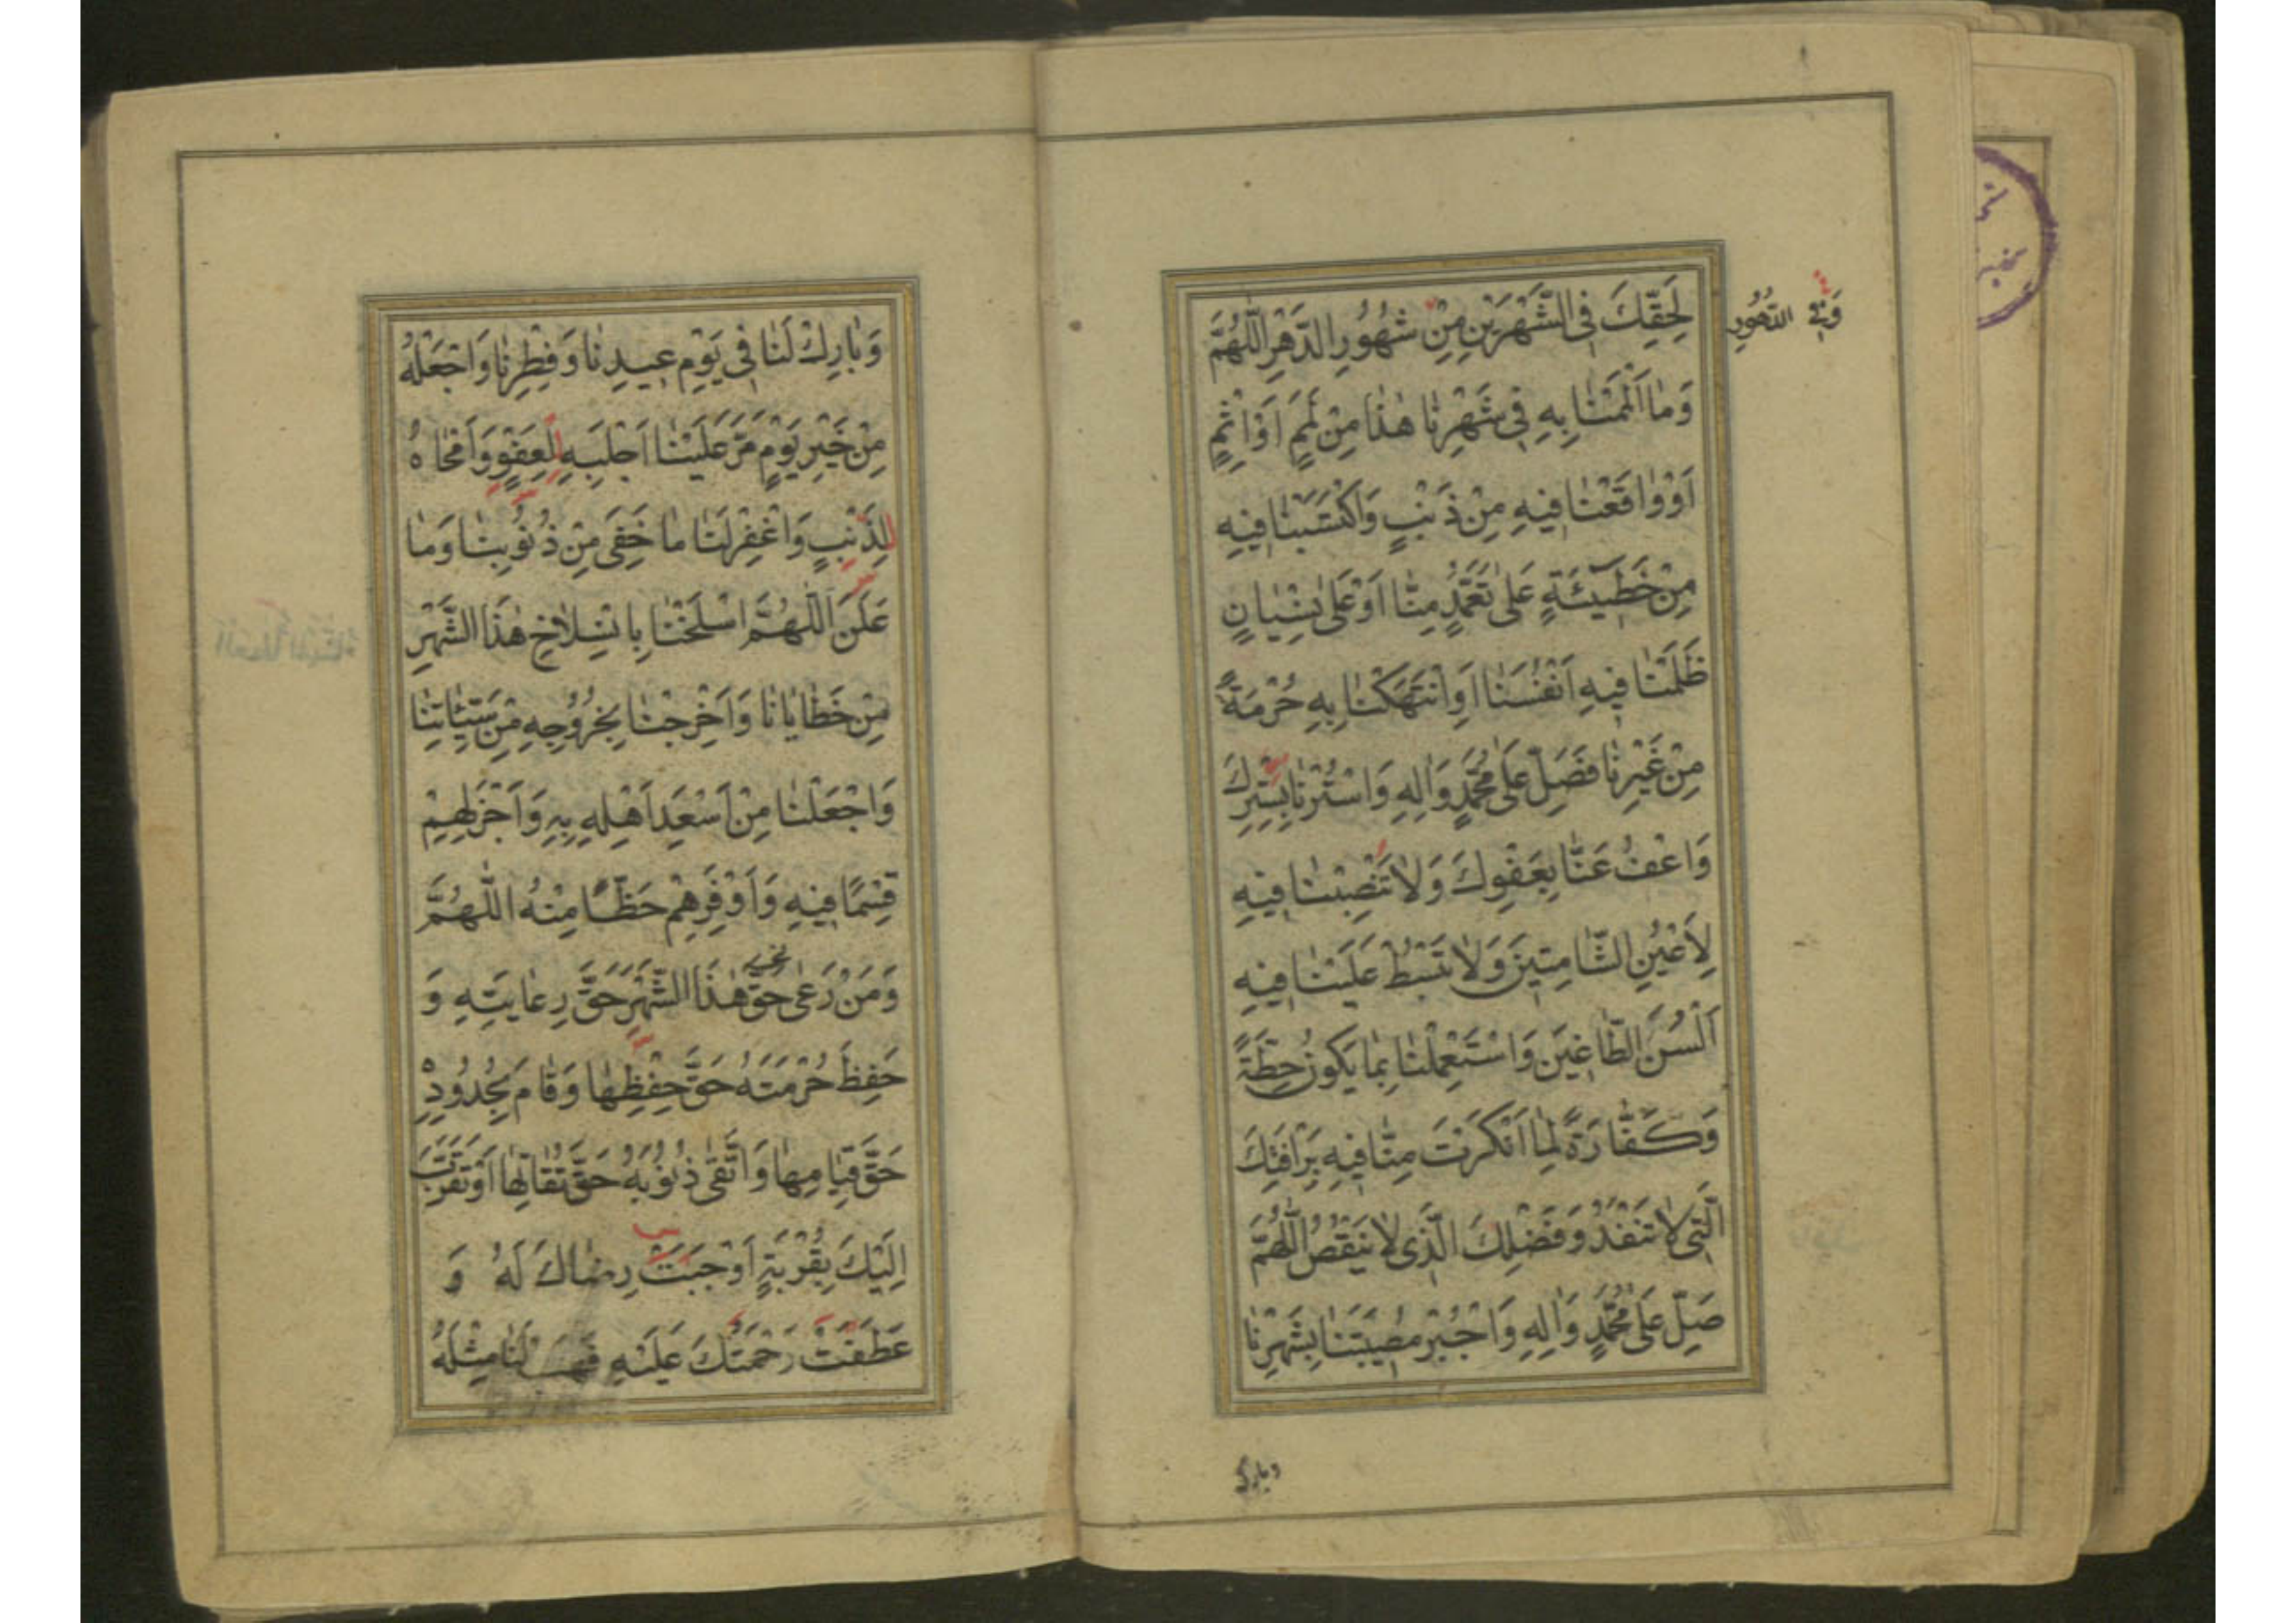 لِحَقِّكَ فِي الشَّهْرَيْنِ مِنْ شُهُورِ الدَّهْرِ اَللّٰهُمَّ
وَفِي الدُّهُورِ
وَمٰا اَلْمَمْنٰا بِهِ فِي شَهْرِنٰا هٰذٰا مِنْ لَمَمٍ اَوْ اِثْمٍ
اَوْ وٰاقَعْنٰا فِيهِ مِنْ ذَنْبٍ وَاكْتَسَبْنٰا فِيهِ
مِنْ خَطِيۤئَةٍ عَلٰى تَعَمُّدٍ مِنّٰا اَوْ عَلٰى نِسْيٰانٍ
ظَلَمْنٰا فِيهِ اَنْفُسَنٰا اَوِ انْتَهَكْنٰا بِهِ حُرْمَةً
مِنْ غَيْرِنٰا فَصَلِّ عَلٰى مُحَمَّدٍ وَاٰلِهِ وَاسْتُرْنٰا بِسِتْرِكَ
وَاعْفُ عَنّٰا بِعَفْوِكَ وَلٰا تَنْصِبْنٰا فِيهِ
لِاَعْيُنِ الشّٰامِتِينَ وَلٰا تَبْسُطْ عَلَيْنٰا فِيهِ
اَلْسُنَ الطّٰاغِينَ وَاسْتَعْمِلْنٰا بِمٰا يَكُونُ حِطَّةً
وَكَفّٰارَةً لِمٰا اَنْكَرْتَ مِنّٰا فِيهِ بِرَافَتِكَ
الَّتِي لٰا تَنْفَدُ وَفَضْلِكَ الَّذِي لٰا يَنْقُصُ اَللّٰهُمَّ
صَلِّ عَلٰى مُحَمَّدٍ وَاٰلِهِ وَاجْبُرْ مُصِيبَتَنٰا بِشَهْرِنٰا
وبارك
وَبٰارِكْ لَنٰا فِي يَوْمِ عِيدِنٰا وَفِطْرِنٰا وَاجْعَلْهُ
مِنْ خَيْرِ يَوْمٍ مَرَّ عَلَيْنٰا اَجْلَبِهِ لِعَفْوٍ وَاَمْحٰاهُ
لِذَنْبٍ وَاغْفِرْ لَنٰا مٰا خَفِيَ مِنْ ذُنُوبِنٰا وَمٰا
عَلَنَ اَللّٰهُمَّ اسْلَخْنٰا بِانْسِلٰاخِ هٰذَا الشَّهْرِ
مِنْ خَطٰايٰانٰا وَاَخْرِجْنٰا بِخُرُوجِهِ مِنْ سَيِّئٰاتِنٰا
وَاجْعَلْنٰا مِنْ اَسْعَدِ اَهْلِهِ بِهِ وَاَجْزَلِهِمْ
قِسْمًا فِيهِ وَاَوْفَرِهِمْ حَظًّا مِنْهُ اَللّٰهُمَّ
وَمَنْ رَعٰى حَقَّ هٰذَا الشَّهْرِ حَقَّ رِعٰايَتِهِ وَ
حَفِظَ حُرْمَتَهُ حَقَّ حِفْظِهٰا وَقٰامَ بِحُدُودِهِ
حَقَّ قِيٰامِهٰا وَاتَّقٰى ذُنُوبَهُ حَقَّ تُقٰاتِهٰا اَوْ تَقَرَّبَ
اِلَيْكَ بِقُرْبَةٍ اَوْجَبَتْ رِضٰاكَ لَهُ وَ
عَطَفَتْ رَحْمَتَكَ عَلَيْهِ فَهَبْ لَنٰا مِثْلَهُ